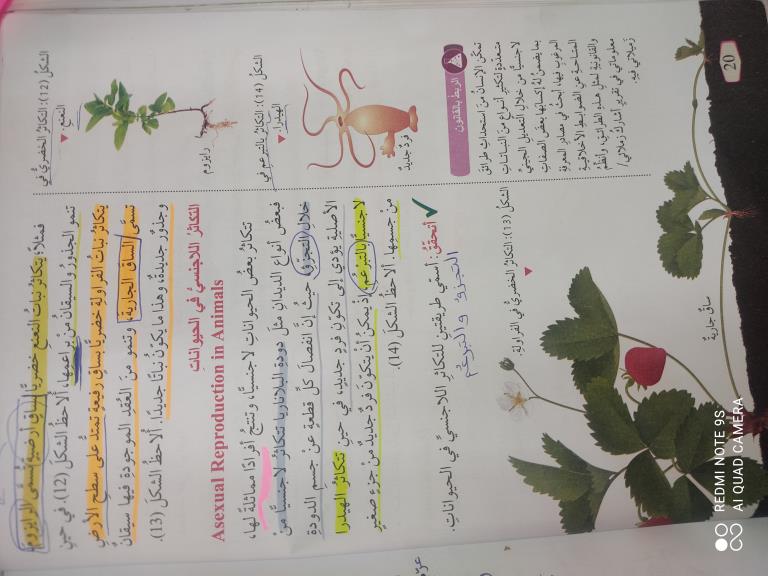 فمثلًا؛ يتكاثرُ نباتُ النعنعِ خضريًّا بساقٍ أرضيّةٍ تُسمّى الرايزومَ
تنمو الجذورُ والسيقانُ منْ براعمِها، ألاحظُ الشكلَ (12). في حينِ
يتكاثرُ نباتُ الفراولةِ خضريًّا بساقٍ رفيعةٍ تمتدُّ على سطحِ الأرضِ
تُسمّى الساقَ الجاريةَ، وتنمو منَ العُقَدِ الموجودةِ فيها سيقانٌ
وجذورٌ جديدةٌ، وهذا ما يكوّنُ نباتًا جديدًا. ألاحظُ الشكلَ (13).
التكاثرُ اللاجنسيُّ في الحيواناتِ
Asexual Reproduction in Animals
تتكاثرُ بعضُ الحيواناتِ لاجنسيًّا، وتنتجُ أفرادًا مماثلةً لها،
فبعضُ أنواعِ الديدانِ مثلِ دودةِ البلاناريا تتكاثرُ لاجنسيًّا منْ
خلالِ التجزؤِ، حيثُ إنَّ انفصالَ كلِّ قطعةٍ عنْ جسمِ الدودةِ
الأصليةِ يؤدي إلى تكوّنِ فردٍ جديدٍ، في حينِ تتكاثرُ الهيدرا
لاجنسيًّا بالتبرعمِ؛ إذْ يمكنُ أنْ يتكوّنَ فردٌ جديدٌ منْ جزءٍ صغيرٍ
منْ جسمِها. ألاحظُ الشكلَ (14).
أتحقّقُ: أسمّي طريقتينِ للتكاثرِ اللاجنسيِّ في الحيواناتِ.
التجزؤ والتبرعم
الشكلُ (12): التكاثرُ الخضريُّ في
النعنعِ.
رايزوم
الشكلُ (14): التكاثرُ بالتبرعمِ في
الهيدرا.
فردٌ جديدٌ
الربطُ بالقانونِ
تمكّنَ الإنسانُ منَ استحداثِ طرائقَ
متعدّدةٍ لتكثيرِ أنواعٍ منَ النباتاتِ
لاجنسيًّا منْ خلالِ التعديلِ الجينيِّ
بما يضمنُ لهُ إكسابَها بعضَ الصفاتِ
المرغوبِ فيها. أبحثُ في مصادرِ المعرفةِ
المتاحةِ عنِ الضوابطِ الأخلاقيةِ
والقانونيةِ لمثلِ هذهِ الطرائقِ، وأنظّمُ
معلوماتي في تقريرٍ أشاركُ زملائي/
زميلاتي فيهِ.
الشكلُ (13): التكاثرُ الخضريُّ في الفراولةِ.
ساقٌ جاريةٌ
20
REDMI NOTE 9S
AI QUAD CAMERA